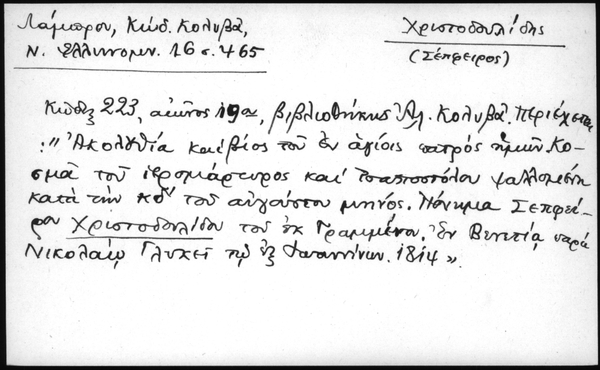 Λάμπρου, Κώδ. Κολυβᾶ,
Ν. Ἑλληνομν. 16 σ. 465
Χριστοδουλίδης
(Σέπφειρος)
Κώδηξ 223, αἰῶνος 19ου, βιβλιοθήκης Ἀλ. Κολυβᾶ. Περιέχεται
: " Ἀκολουθία καὶ βίος τοῦ ἐν ἁγίοις πατρὸς ἡμῶν Κο-
σμᾶ τοῦ ἱερομάρτυρος καὶ ἰσαποστόλου ψαλλομένη
κατὰ τὴν κδ' τοῦ αὐγούστου μηνός. Πόνημα Σεπφεί-
ρου Χριστοδουλίδου τοῦ ἐκ Γραμμένου. Ἐν Βενετίᾳ παρὰ
Νικολάῳ Γλυκεῖ τῷ ἐξ Ἰωαννίνων. 1814 ».